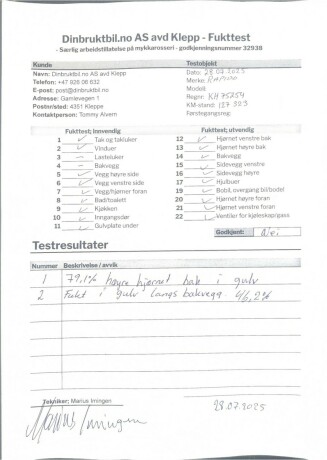 Dinbruktbil.no AS avd Klepp - Fukttest
- Særlig arbeidstillatelse på mykkarosseri - godkjenningsnummer 32938
Kunde
Testobjekt
Navn: Dinbruktbil.no AS Klepp
Telefon: +47 926 06 632
E-post: post@dinbruktbil.no
Adresse: Gamlevegen 1
Postnr/sted: 4351 Kleppe
Kontaktperson: Tommy Alvern
Dato: 28.07.2025
Merke: RAPIDO
Modell:
Regnr: KH75254
KM-stand: 137 303
Førstegangsreg:
Fukttest; innvendig
1 ✓ Tak og takluker
2 ✓ Vinduer
3 - Lasteluker
4 - Bakvegg
5 ✓ Vegg høyre side
6 ✓ Vegg venstre side
7 ✓ Vegg/hjørner foran
8 ✓ Bad/toalett
9 ✓ Kjøkken
10 ✓ Inngangsdør
11 ✓ Gulvplate under
Fukttest; utvendig
12 ✓ Hjørnet venstre bak
13 ✓ Hjørnet høyre bak
14 ✓ Bakvegg
15 ✓ Sidevegg venstre
16 ✓ Sidevegg høyre
17 ✓ Hjulbuer
19 ✓ Bobil, overgang bil/bodel
20 ✓ Hjørnet høyre foran
21 ✓ Hjørnet venstre foran
22 ✓ Ventiler for kjøleskap/gass
Godkjent: Nei
Testresultater
Nummer Beskrivelse / avvik
1 79,1% høyre hjørnet bak i gulv
2 Fukt i gulv langs bakvegg. 46,2%
Tekniker; Marius Imingen
Marius Imingen
28.07.2025